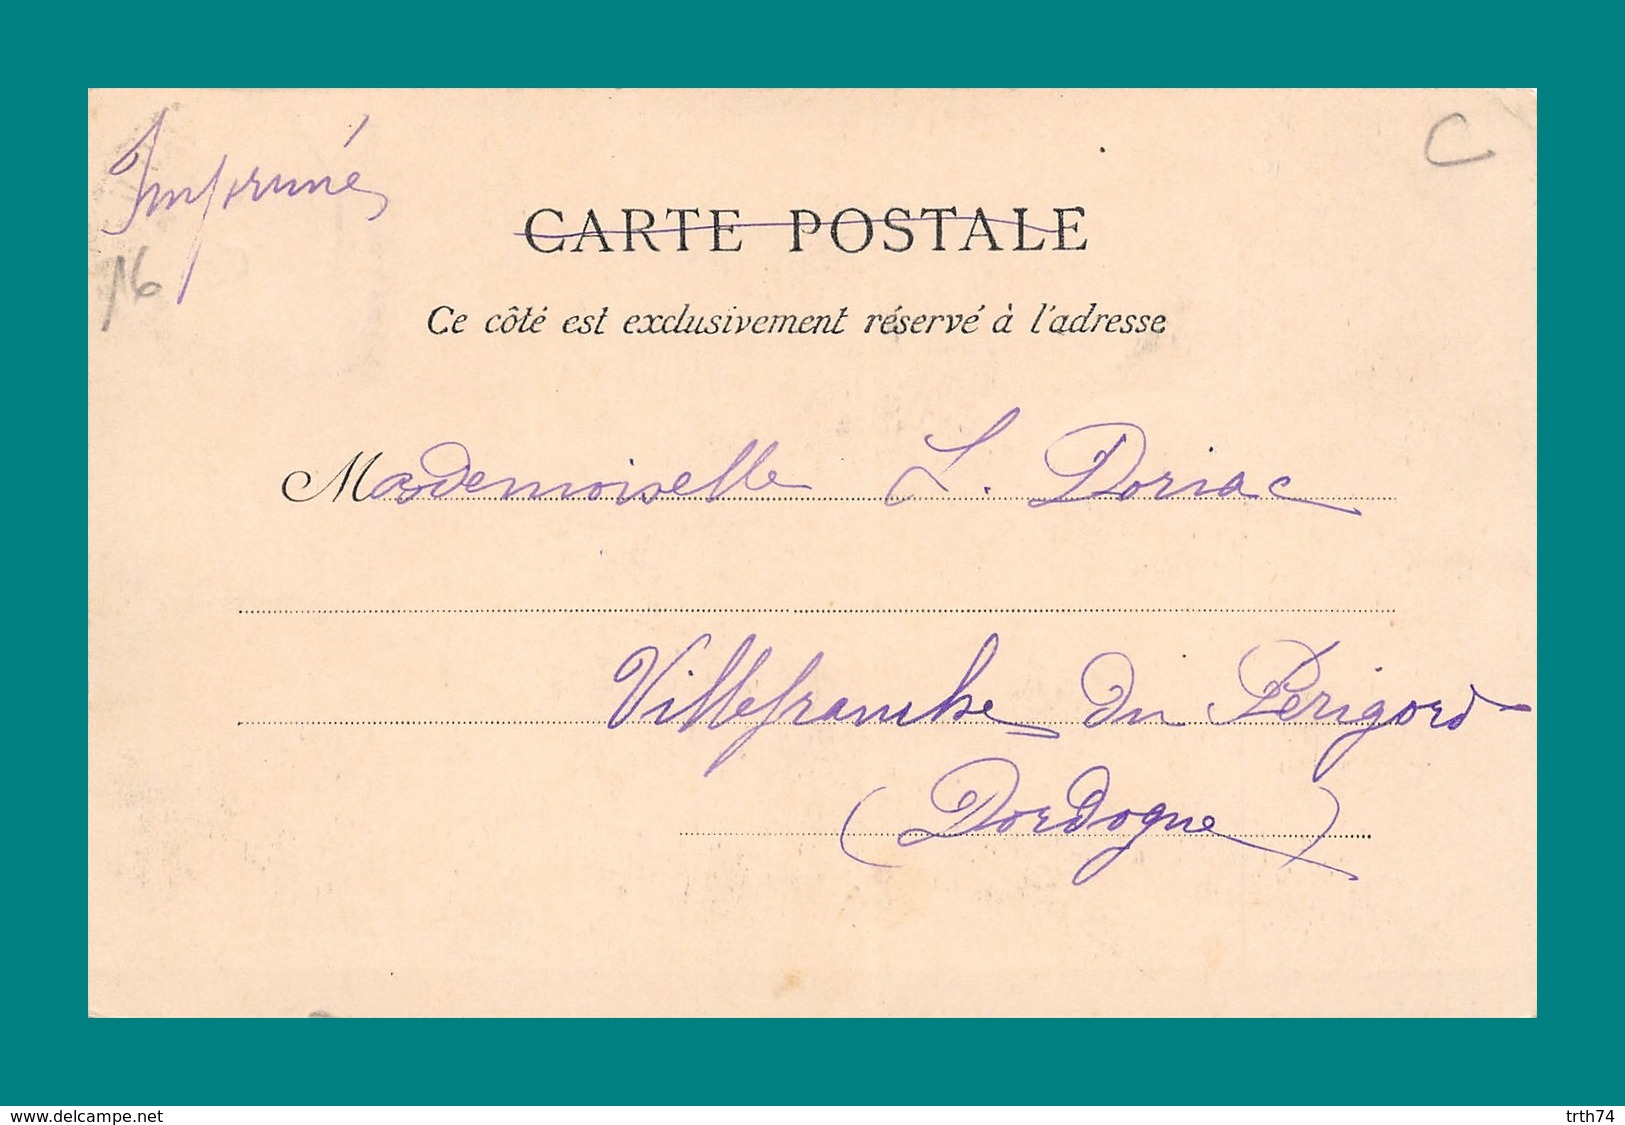 Imprimé
C
16
CARTE POSTALE
Ce côté est exclusivement réservé à l'adresse
Mademoiselle L. Doriac
Villefranche du Périgord
(Dordogne)
www.delcampe.net
trth74